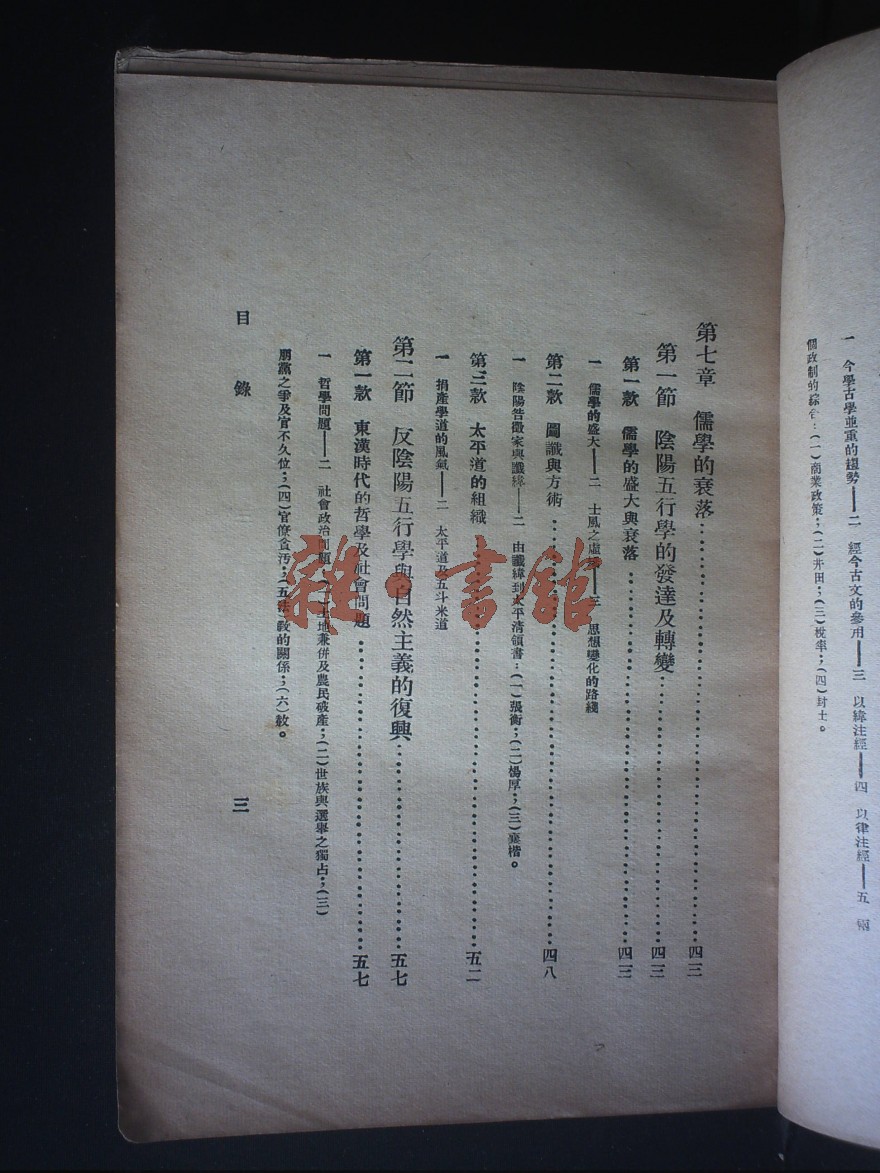 一　今學古學並重的趨勢——二　經今古文的參用——三　以緯注經——四　以律注經——五　兩
個政制的綜合：（一）商業政策；（二）井田；（三）稅率；（四）封士。
第七章　儒學的衰落……四三
第一節　陰陽五行學的發達及轉變……四三
第一款　儒學的盛大與衰落……四三
一　儒學的盛大——二　士風之虛——三　思想變化的路綫
第二款　圖讖與方術……四八
一　陰陽咎徵家與讖緯——二　由讖緯到太平清領書：（一）張衡；（二）楊厚；（三）襄楷。
第三款　太平道的組織……五二
一　捐產學道的風氣——二　太平道及五斗米道
第二節　反陰陽五行學與自然主義的復興……五七
第一款　東漢時代的哲學及社會問題……五七
一　哲學問題——二　社會政治問題（一）土地兼併及農民破產；（二）世族與選舉之獨占；（三）
朋黨之爭及官不久位；（四）官僚貪污；（五）法教的關係；（六）教。
目　錄
三
雜·書館